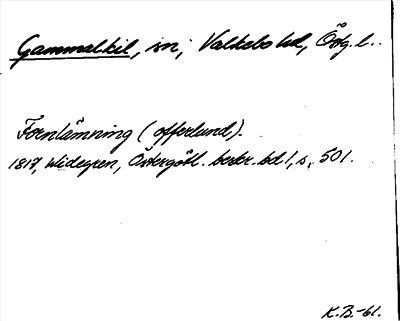 Gammalkil, sn; Valkebo hd, Östg. l..
Fornlämning (offerlund).
1817, Widegren, Östergötl. beskr. bd 1, s. 501.
K.B.-61.